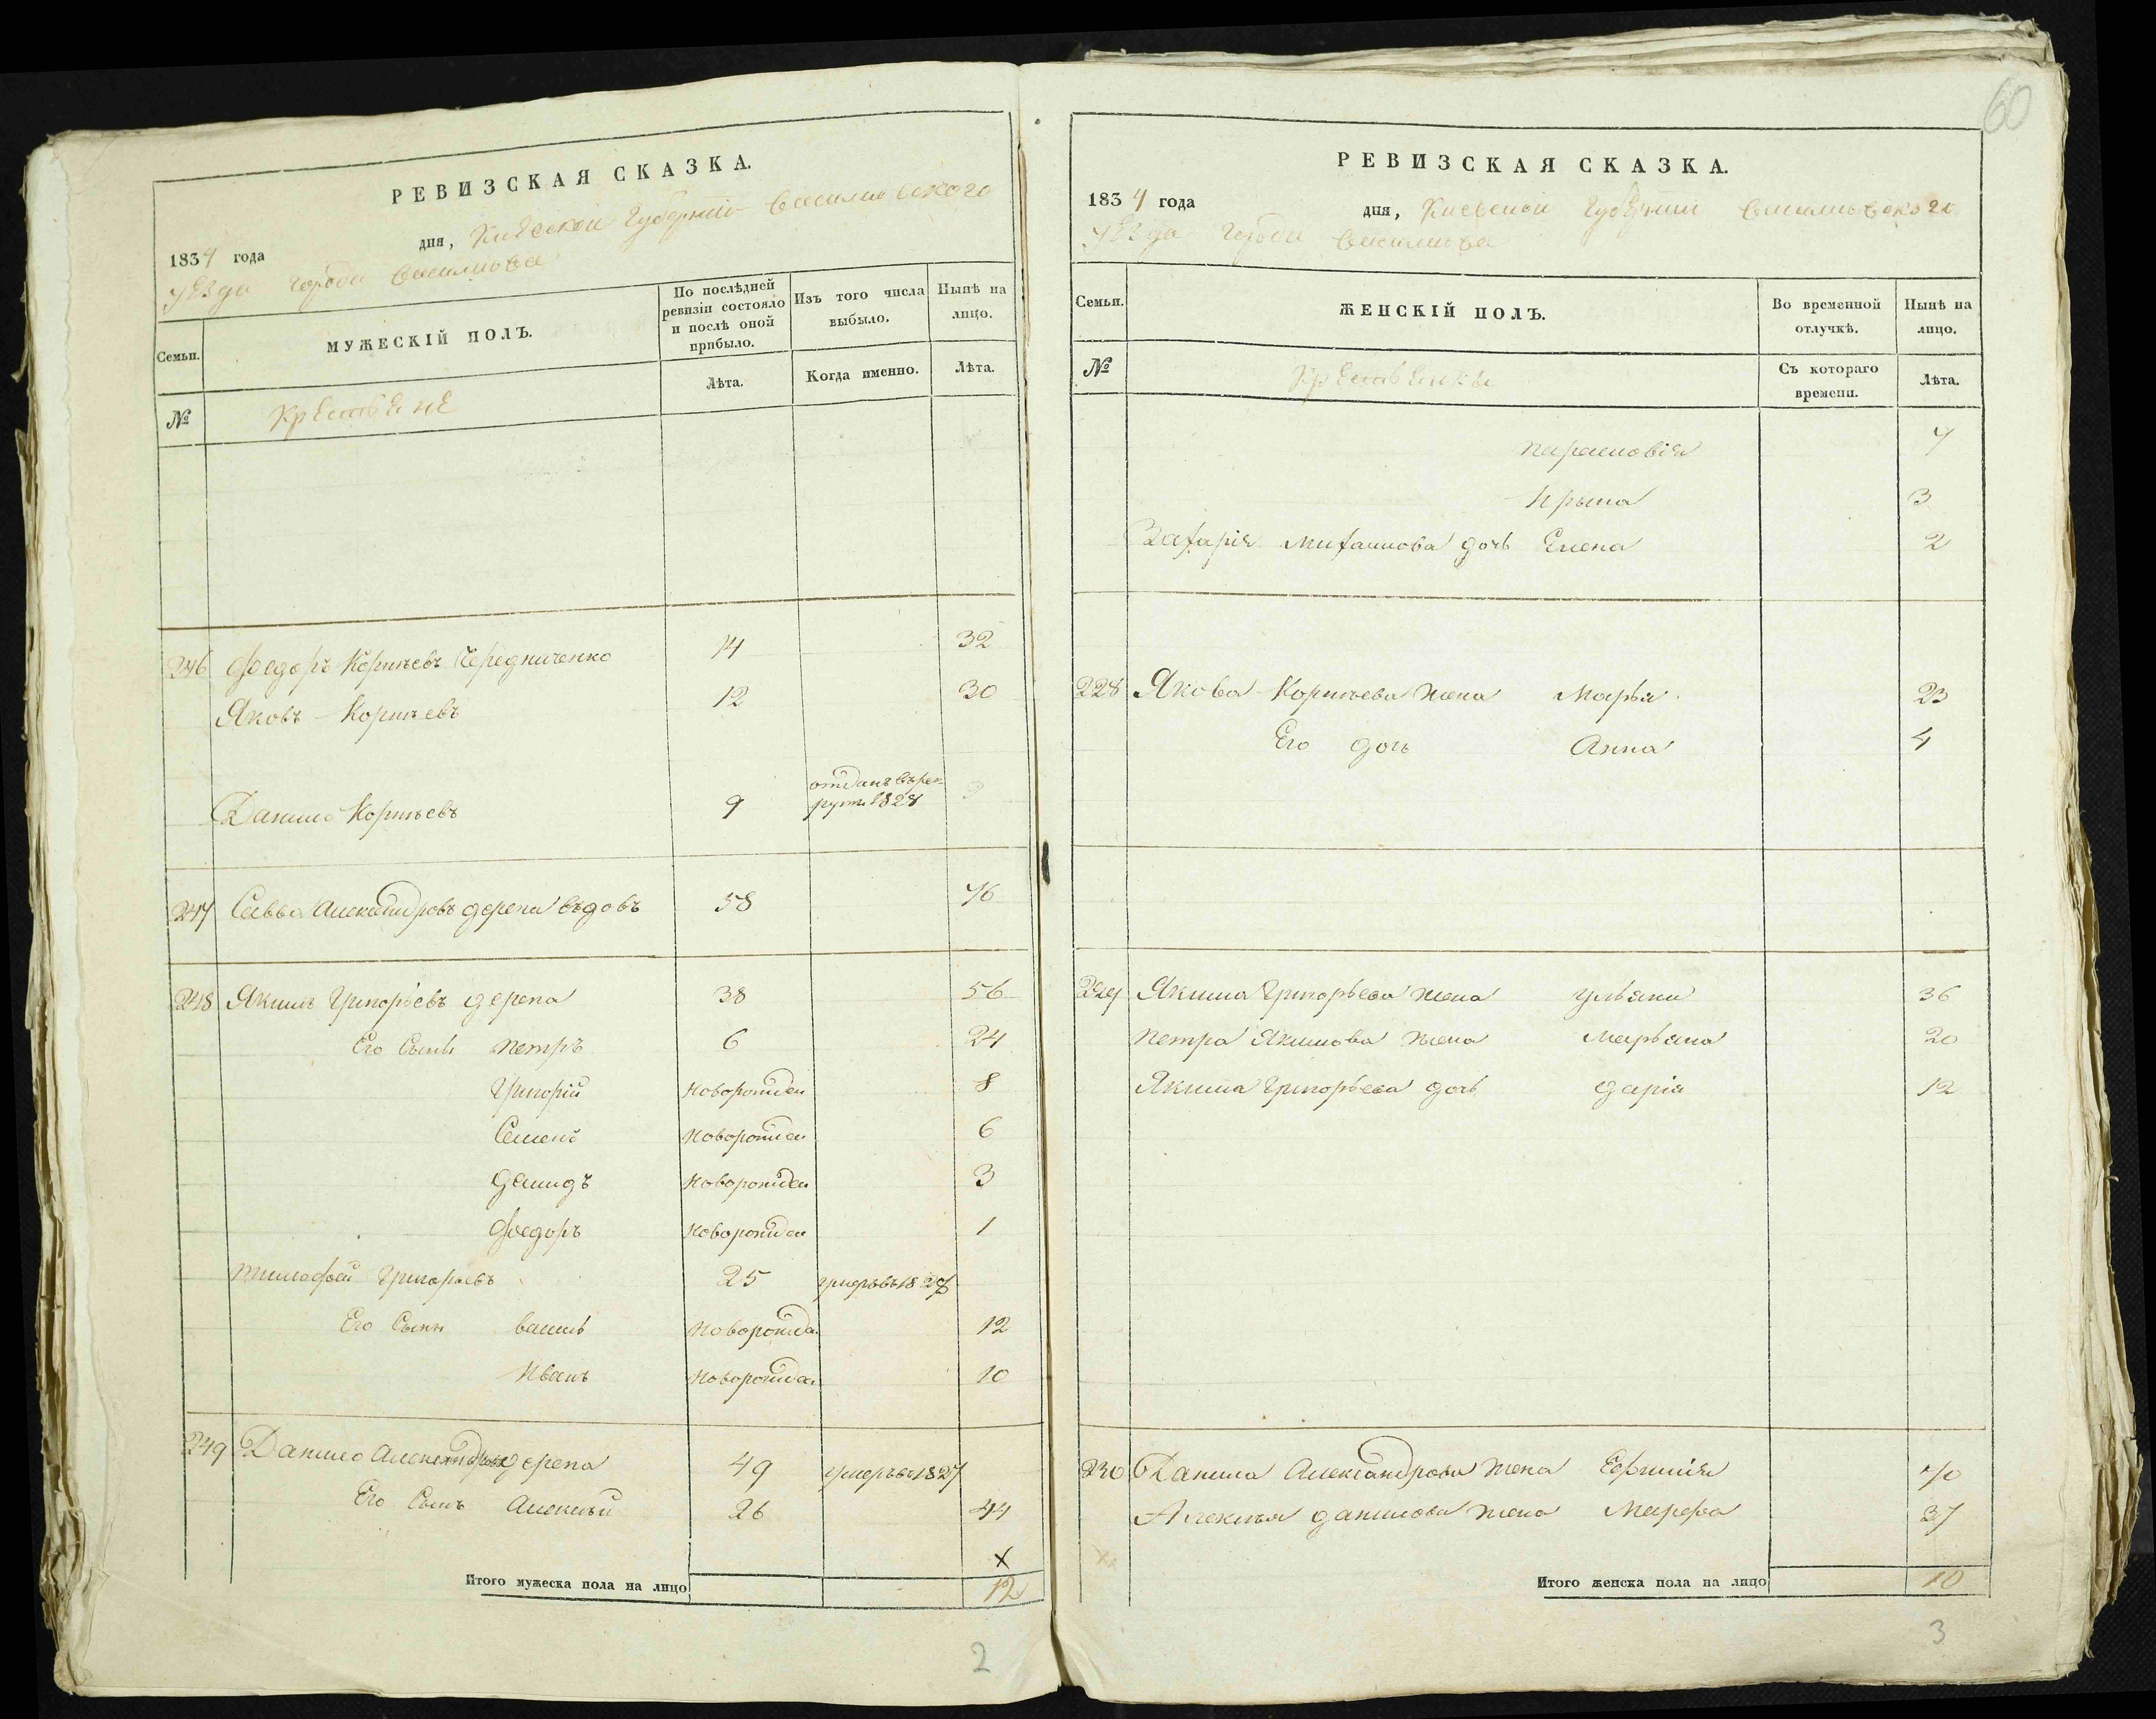 РЕВИЗСКАЯ СКАЗКА.
1834 года дня, Киевской Губернии Васильковского
уезда города Василькова
Семьи. МУЖЕСКІЙ ПОЛЪ. По послѣдней ревизіи состояло и послѣ оной прибыло. Изъ того числа выбыло. Нынѣ на лицо.
№ Крестьяне Лѣта. Когда именно. Лѣта.
246 Федоръ Корнѣевъ Чередниченко 14 32
Яковъ Корнѣевъ 12 30
Данило Корнѣевъ 9 отданъ въ рекруты 1828
247 Савва Александровъ дерепа вдовъ 58 76
248 Якимъ Григорьевъ дерепа 38 56
Его Сынъ Петръ 6 24
Григорій новорожден 8
Семенъ новорожден 6
Демидъ новорожден 3
Федоръ новорожден 1
Тимофей Григорьевъ 25 умеръ въ 18
Его Сынъ Василь новорожден 12
Иванъ новорожден 10
249 Данило Александровъ дерепа 49 умеръ въ 1827
Его Сынъ Алексѣй 26 44
х
Итого мужеска пола на лицо 12
2
60
РЕВИЗСКАЯ СКАЗКА.
1834 года дня, Киевской Губернии Васильковского
уезда города Василькова
Семьи. ЖЕНСКІЙ ПОЛЪ. Во временной отлучкѣ. Нынѣ на лицо.
№ Крестьенки Съ котораго времени. Лѣта.
Парасковія 7
Ирына 3
Захарія Михайлова дочь Елена 2
228 Якова Корнѣева жена Марья 23
Его дочь Анна 4
229 Якима Григорьева жена Ульяна 36
Петра Якимова жена Марьяна 20
Якима Григорьева дочь Дарія 12
230 Данила Александрова жена Ефимія 70
Алексѣя Данилова жена Марфа 37
Итого женска пола на лицо 10
3